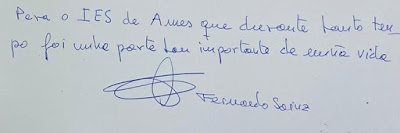 Para o IES de Ames que durante tanto tem
po foi unha parte tan importante de miña vida
Fernando Sainz